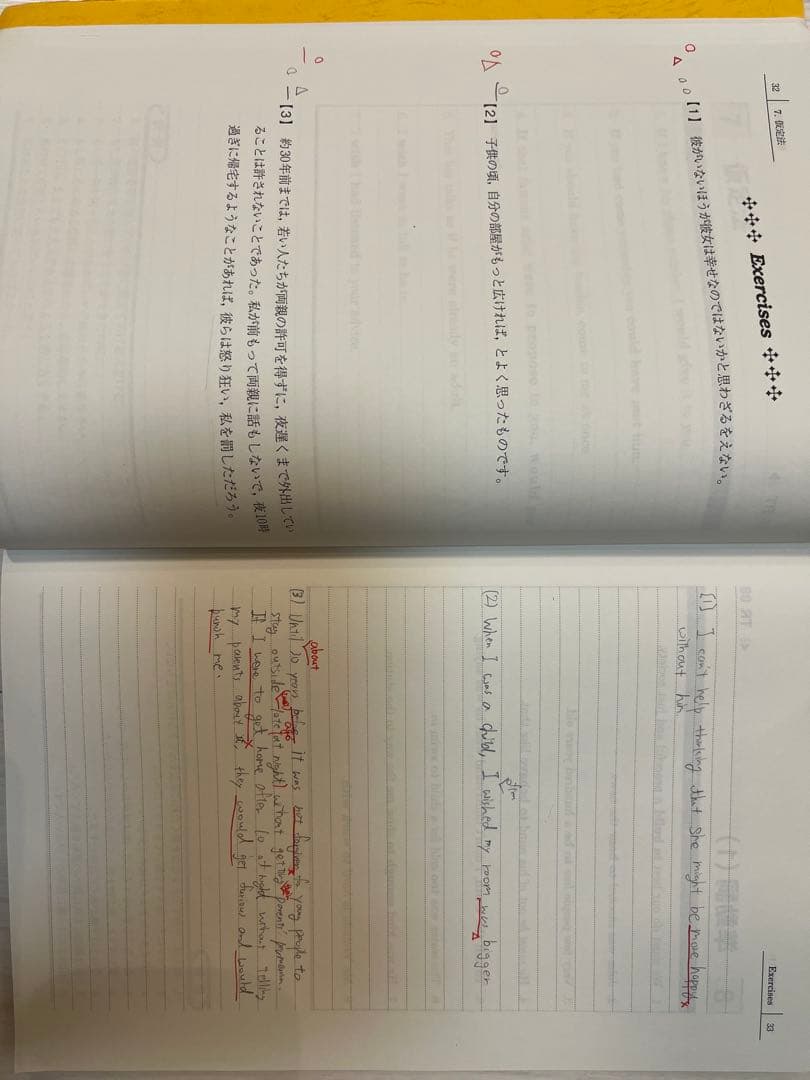 32 7. 仮定法
✣✣✣ Exercises ✣✣✣
【1】 彼がいないほうが彼女は幸せなのではないかと思わざるをえない。
【2】 子供の頃, 自分の部屋がもっと広ければ, とよく思ったものです。
【3】 約30年前までは, 若い人たちが両親の許可を得ずに, 夜遅くまで外出してい
ることは許されないことであった。私が前もって両親に話もしないで, 夜10時
過ぎに帰宅するようなことがあれば, 彼らは怒り狂い, 私を罰しただろう。
Exercises 33
[1] I can't help thinking that she might be more happy
without him
(2) When I was a child, I often wished my room was bigger
(3) Until about 30 years before ago it was not forgiven for young people to
stay outside late (at night) without getting parents'
If I were to get home after 10 at night without telling
my parents about it, they would get furious and would
punish me.